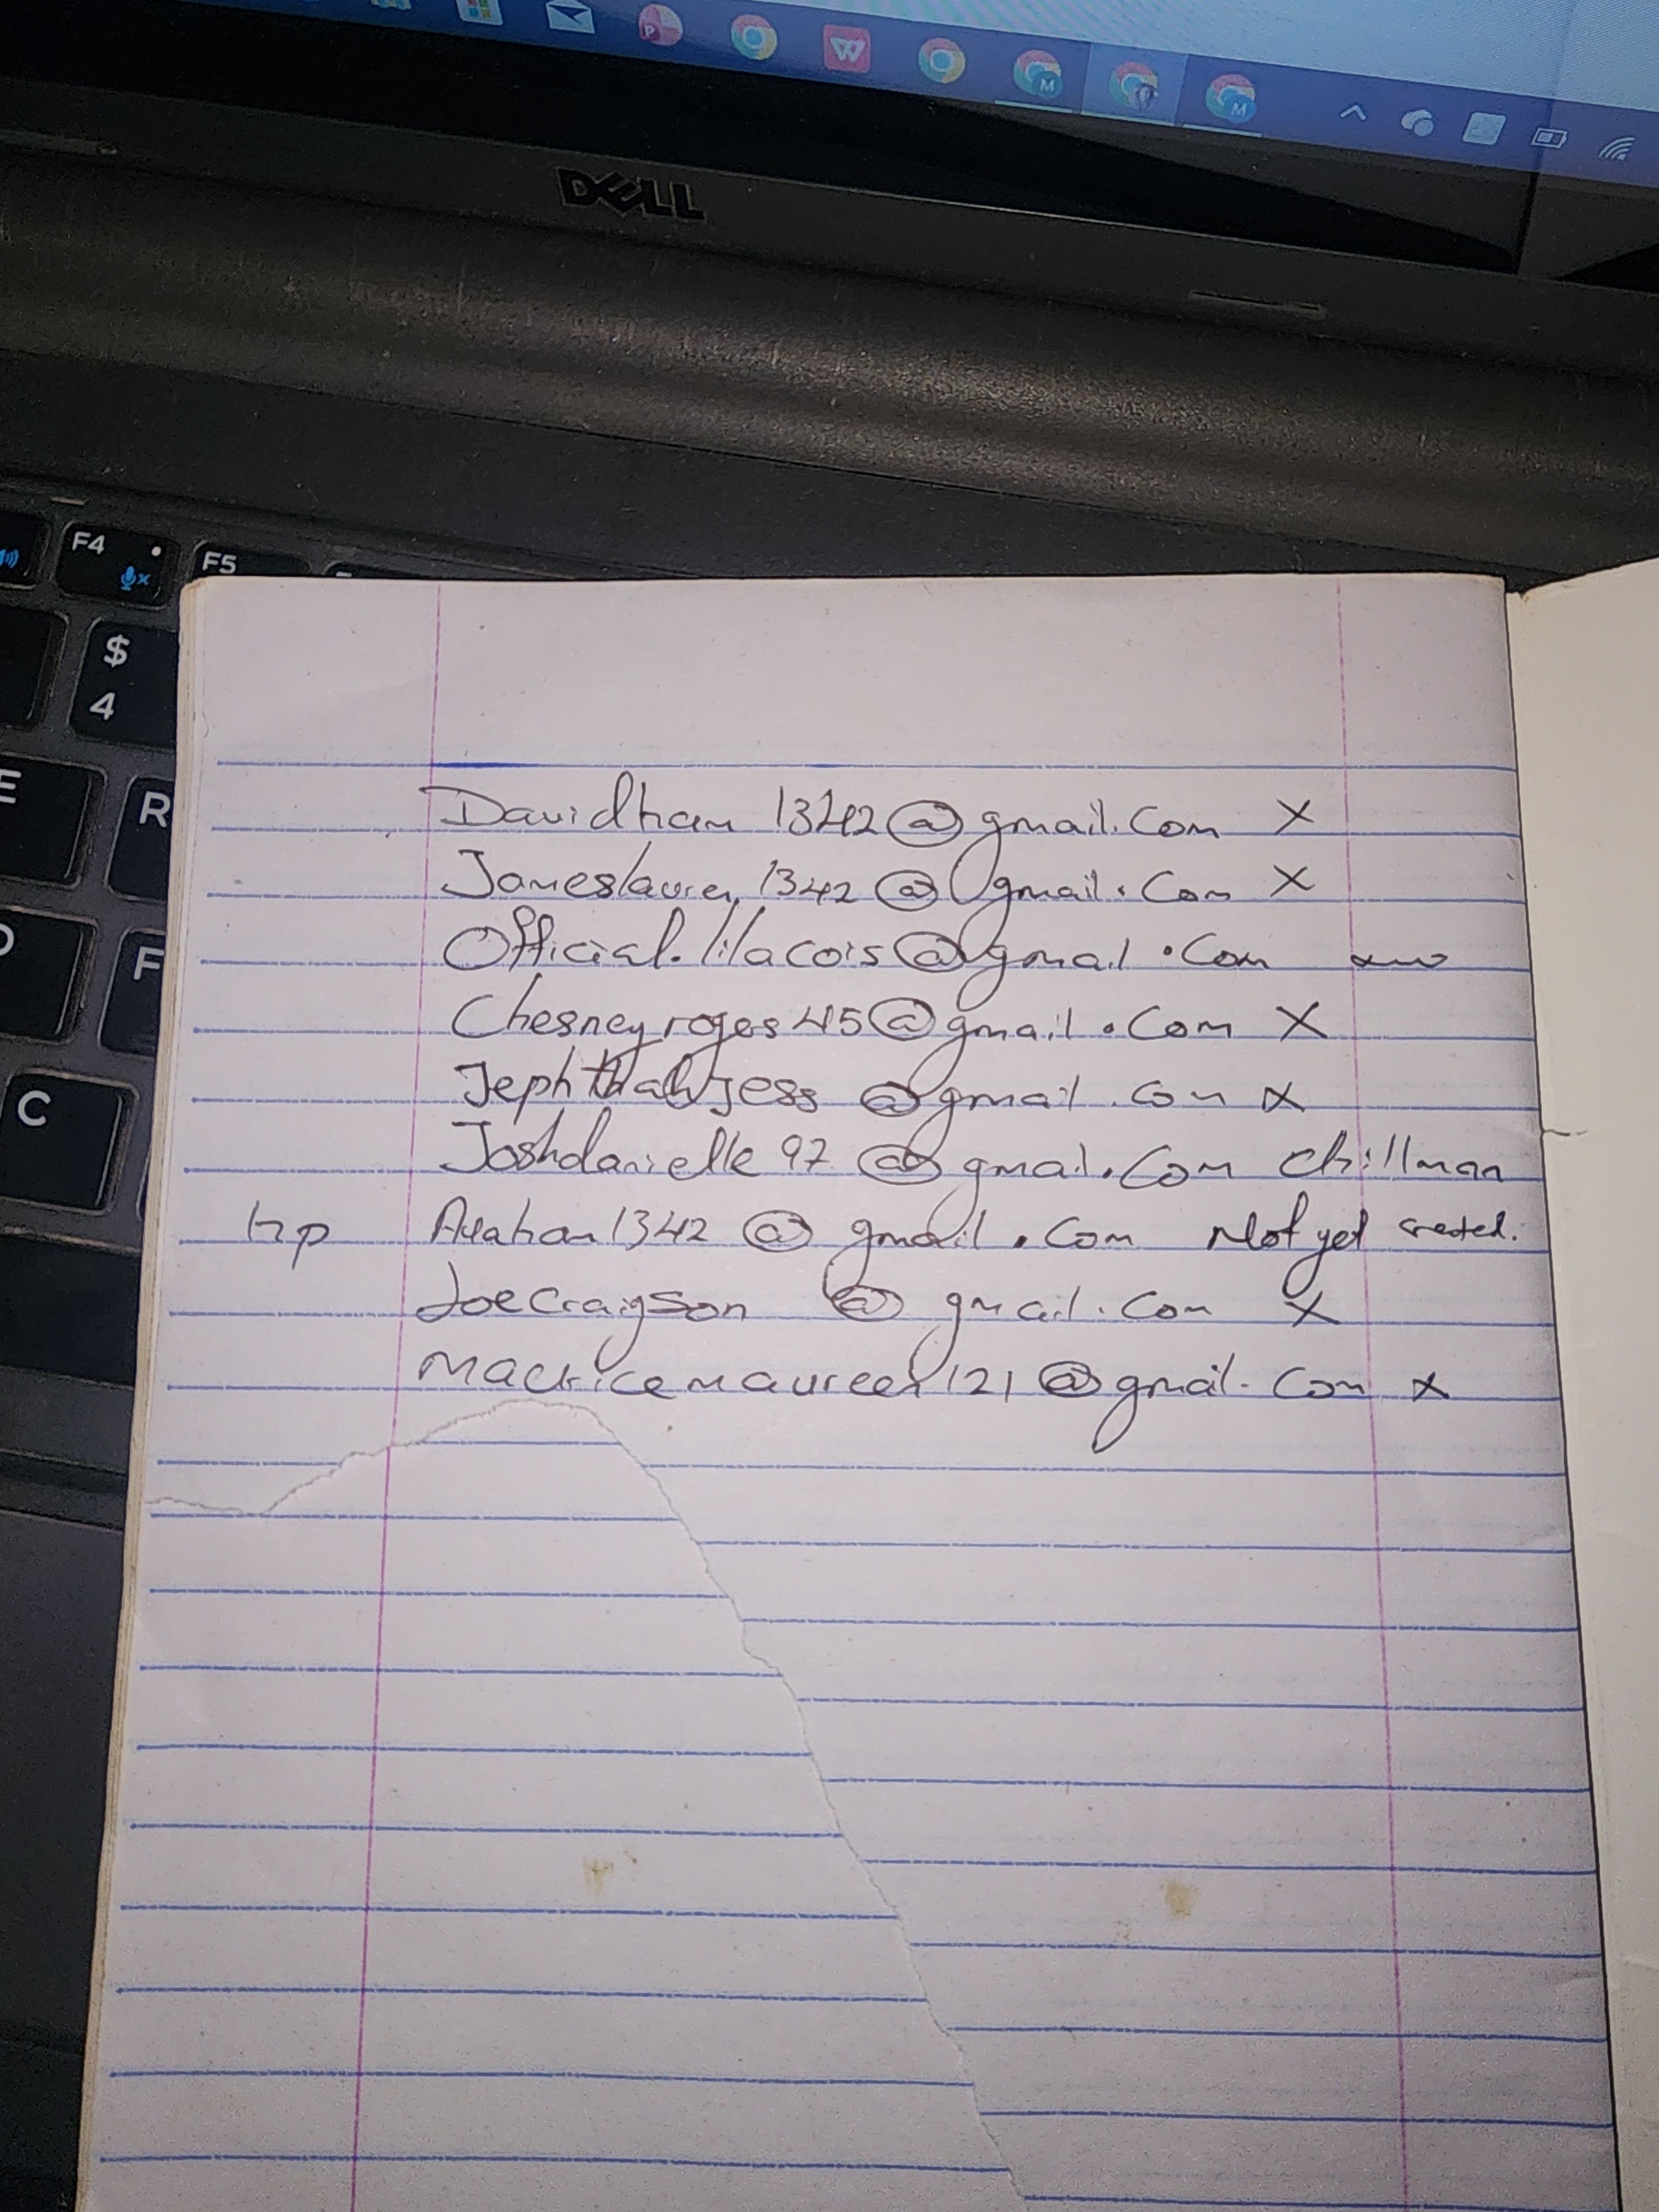 DELL
F4
F5
$
4
E
R
D
F
C
Davidham 1342@gmail.Com X
1342 @ gmail. Com X
Official.lilacois@gmail .Com
Chesneyroges45@gmail.Com X
Jephthahjess @gmail.com X
Joshdanielle 97 @ gmail.Com chillman
hp 1342 @ gmail.Com Not yet created.
Joecraigson @ gmail.Com X
Mackricemaureen121@gmail.Com X